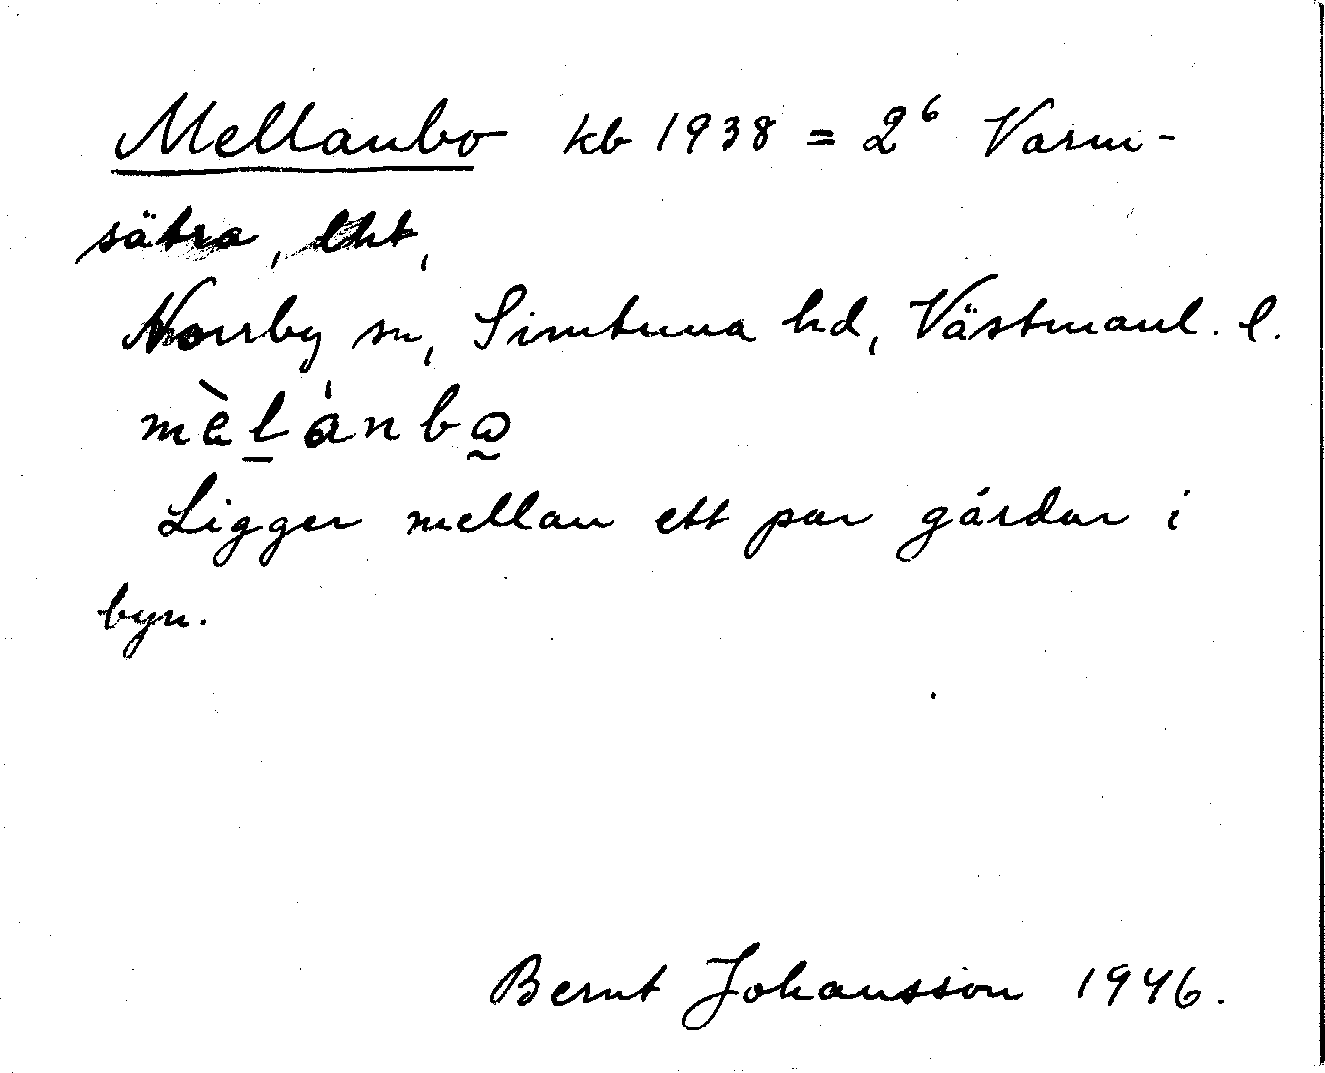 Mellanbo kb 1938 = 2⁶ Varm-
sätra, lht,
Norrby sn, Simtuna hd, Västmanl. l.
mèl̲ánbω̰
Ligger mellan ett par gårdar i
byn.
Bernt Johansson 1946.